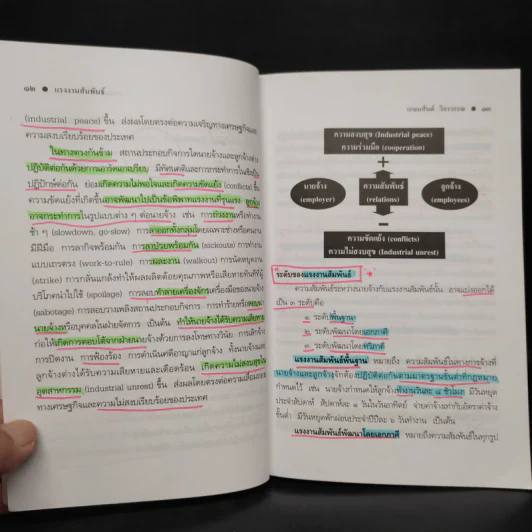 ๑๒ ● แรงงานสัมพันธ์
(industrial peace) ขึ้น ส่งผลโดยตรงต่อความเจริญทางเศรษฐกิจและ
ความสงบเรียบร้อยของประเทศ
ในทางตรงกันข้าม สถานประกอบกิจการใดนายจ้างและลูกจ้างต่าง
ปฏิบัติต่อกันด้วยการเอารัดเอาเปรียบ มีทัศนคติและการกระทำในเชิง
ปฏิปักษ์ต่อกัน ย่อมเกิดความไม่พอใจและเกิดความขัดแย้ง (conflicts) ขึ้น
ความขัดแย้งที่เกิดขึ้นอาจพัฒนาไปเป็นข้อพิพาทแรงงานที่รุนแรง ลูกจ้าง
อาจกระทำการในรูปแบบต่าง ๆ ต่อนายจ้าง เช่น การถ่วงงานหรือทำงาน
ช้า ๆ (slowdown, go-slow) การลาออกทั้งกลุ่มโดยเฉพาะช่างหรือคนงาน
มีฝีมือ การลากิจพร้อมกัน การลาป่วยพร้อมกัน (sickouts) การทำงาน
แบบเถรตรง (work-to-rule) การผละงาน (walkout) การนัดหยุดงาน
(strike) การกลั่นแกล้งทำให้ผลผลิตด้อยคุณภาพหรือเสียหายทันทีที่ผู้
บริโภคนำไปใช้ (spoilage) การลอบทำลายเครื่องจักรเครื่องมือของนายจ้าง
(sabotage) การลอบวางเพลิงสถานประกอบกิจการ การทำร้ายหรือ
นายจ้างหรือบุคคลในฝ่ายจัดการ เป็นต้น ทำให้นายจ้างได้รับความเสียหาย
ก่อให้เกิดการตอบโต้จากฝ่ายนายจ้างด้วยการลงโทษทางวินัย การเลิกจ้าง
การปิดงาน การฟ้องร้อง การดำเนินคดีอาญาแก่ลูกจ้าง ทั้งนายจ้างและ
ลูกจ้างต่างได้รับความเสียหายและเดือดร้อน เกิดความไม่สงบสุขใน
อุตสาหกรรม (industrial unrest) ขึ้น ส่งผลโดยตรงต่อความเสื่อม
ทางเศรษฐกิจและความไม่สงบเรียบร้อยของประเทศ
เกษมสันต์ วิลาวรรณ ● ๑๓
ความสงบสุข (Industrial peace)
ความร่วมมือ (cooperation)
+
นายจ้าง
(employer)
ความสัมพันธ์
(relations)
ลูกจ้าง
(employees)
–
ความขัดแย้ง (conflicts)
ความไม่สงบสุข (Industrial unrest)
ระดับของแรงงานสัมพันธ์
ความสัมพันธ์ระหว่างนายจ้างกับแรงงานสัมพันธ์นั้น อาจแบ่งออกได้
เป็น ๓ ระดับคือ
๑. ระดับพื้นฐาน
๒. ระดับพัฒนาโดยเอกภาคี
๓. ระดับพัฒนาโดยทวิภาคี
แรงงานสัมพันธ์พื้นฐาน หมายถึง ความสัมพันธ์ในทางการจ้างที่
นายจ้างและลูกจ้างจักต้องปฏิบัติต่อกันตามมาตรฐานขั้นต่ำที่กฎหมาย
กำหนดไว้ เช่น นายจ้างกำหนดให้ลูกจ้างทำงานวันละ ๘ ชั่วโมง มีวันหยุด
ประจำสัปดาห์ สัปดาห์ละ ๑ วันในวันอาทิตย์ จ่ายค่าจ้างเท่ากับอัตราค่าจ้าง
ขั้นต่ำ มีวันหยุดพักผ่อนประจำปีปีละ ๖ วันทำงาน เป็นต้น
แรงงานสัมพันธ์พัฒนาโดยเอกภาคี หมายถึงความสัมพันธ์ในทุกรูป